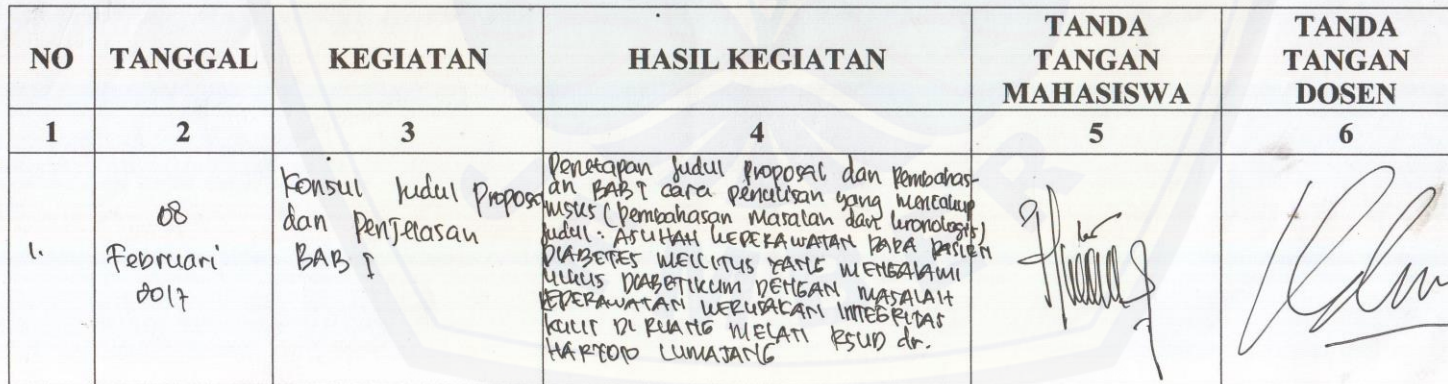 NO TANGGAL KEGIATAN HASIL KEGIATAN TANDA TANGAN MAHASISWA TANDA TANGAN DOSEN
1 2 3 4 5 6
1.
08
Februari
2017
Konsul Judul Proposal
dan Penjelasan
BAB I
Penetapan Judul Proposal dan Pembahas-
an BAB I cara penulisan yang mencakup
MSKS (pembahasan Masalah dan kronologis)
Judul : ASUHAN KEPERAWATAN PADA PASIEN
DIABETES MELLITUS YANG MENGALAMI
ULKUS DIABETIKUM DENGAN MASALAH
KEPERAWATAN KERUSAKAN INTEGRITAS
KULIT DI RUANG MELATI RSUD dr.
HARYOTO LUMAJANG